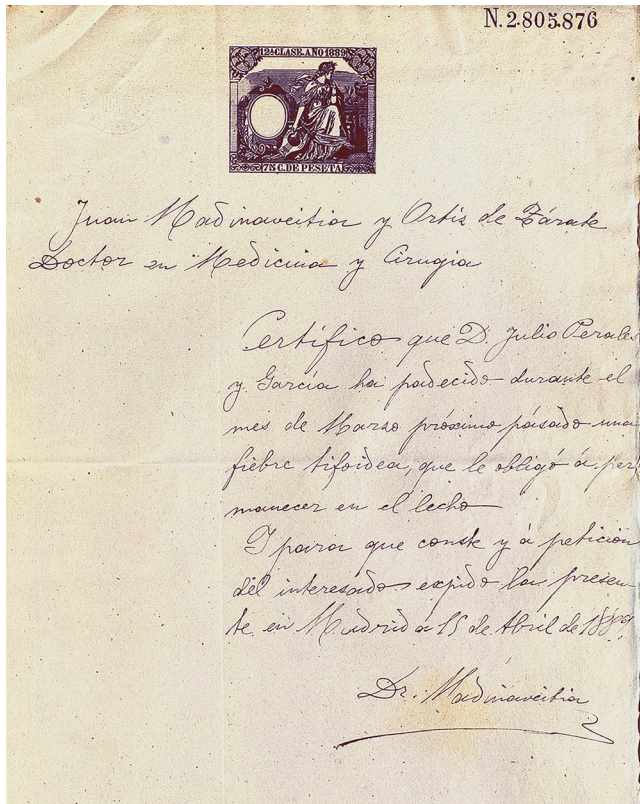 N. 2.805.876
12ª CLASE. AÑO 1889
75 C. DE PESETA
Juan Madinaveitia y Ortiz de Zárate
Doctor en Medicina y Cirugia
Certífico que D. Julio Perales
y García ha padecido durante el
mes de Marzo próximo pásado una
fiebre tifoidea, que le obligó á per
manecer en el lecho
I para que conste y á petición
del interesado expido la presen
te en Madrid a 15 de Abril de 1889
Dr. Madinaveitia